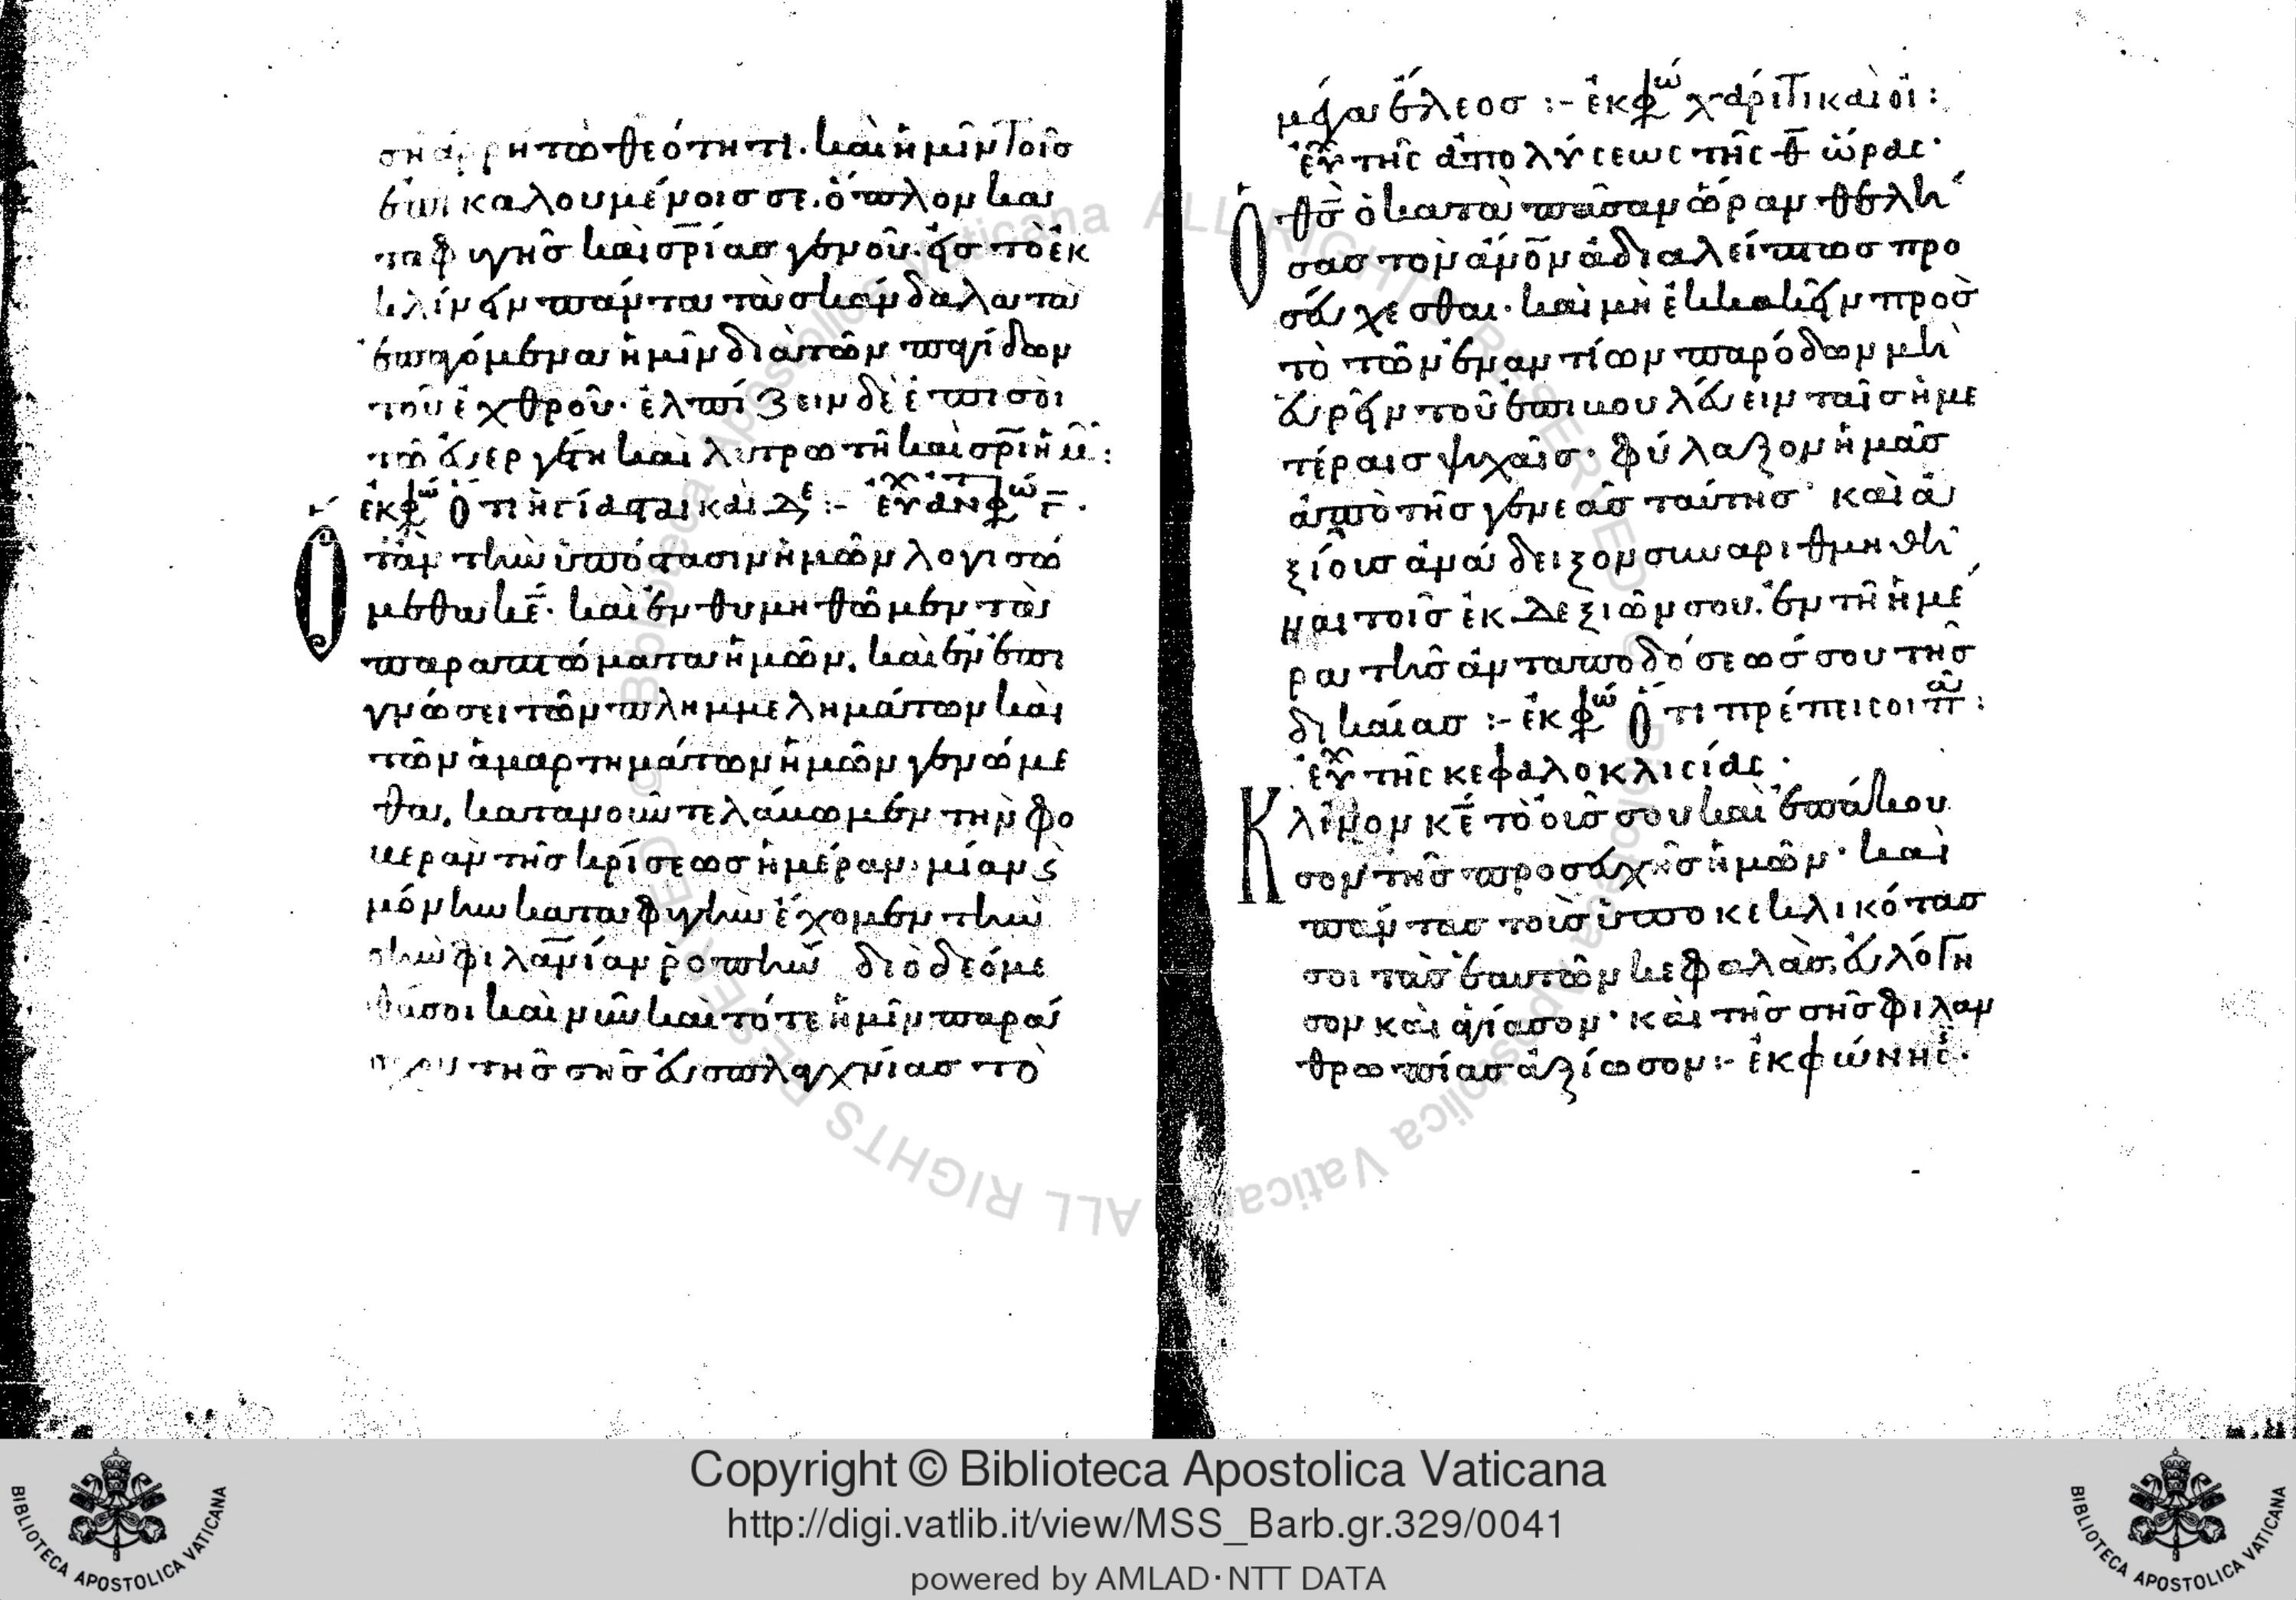 ση ἀρρήτω θεότητι. καὶ ἡμῖν τοῖς
ἐπικαλουμένοις σε. ὅπλον και
καταφυγῆς καὶ σρ̅ίας γενοῦ. εἰς τὸ ἐκ
κλίνειν πάντα τὰ σκάνδαλα τὰ
ἐπαγόμενα ἡμῖν διὰ τῶν παγίδων
τοῦ ἐχθροῦ· ἐλπίζειν δὲ ἐπὶ σοὶ
τῶ εὐεργέτη καὶ λυτρωτῆ καὶ σρ̅ι ἡμ:
ἐκφω Ὅτι ἡγίασται καὶ δε :- εὐχ ἀντιφω γ̅.
Ὅταν τὴν ὑπόστασιν ἡμῶν λογισώ
μεθα κε̅· καὶ ἐνθυμηθῶμεν τὰ
παραπτώματα ἡμῶν. καὶ ἐν ἐπι
γνώσει τῶν πλημμελημάτων καὶ
τῶν ἁμαρτημάτων ἡμῶν γενώμε
θα. κατανοῦντελάβωμεν τὴν φο
βερὰν τῆς κρίσεως ἡμέραν. μίαν ϗ
μόνην καταφυγὴν ἔχομεν τὴν
σὴν φιλαν̅ίαν ῥοπὴν διὸ δεόμε
θά σοι καὶ νῦν καὶ τότε ἡμῖν παρά
σχου τῆς σῆς εὐσπλαγχνίας τὸ
μέγα ἔλεος :- ἐκφω χάριτι καὶ οἰ:
εὐχ τῆς ἀπολύσεως τῆς θ̅ ὥρας·
Ὁ θσ̅ ὁ κατὰ πᾶσαν ὥραν θελή
σας τὸν ἀν̅ον ἀδιαλείπτως προ
σεύχεσθαι· καὶ μὴ ἐκκακεῖν πρὸς
τὸ τῶν ἐναντίων πάροδον μὴ
εὑρεῖν τοῦ ἐπιβουλεύειν ταῖς ἡμε
τέραις ψυχαῖς· φύλαξον ἡμᾶς
ἀπὸ τῆς γενεᾶς ταύτης· καὶ ἀ
ξίους ἀνάδειξον συναριθμηθῆ
ναι τοῖς ἐκ δεξιῶν σου. ἐν τῆ ἡμέ
ρα τῆς ἀνταποδόσεώς σου τῆς
δικαίας :- ἐκφω Ὅτι πρέπει σοι πα:
εὐχ τῆς κεφαλοκλισίας·
Κλῖνον κε̅ τὸ οὖς σου καὶ ἐπάκου
σον τῆς προσευχῆς ἡμῶν· καὶ
πάντας τοὺς ὑποκεκλικότας
σοι τὰς ἑαυτῶν κεφαλὰς. εὐλόγη
σον καὶ ἁγίασον· καὶ τῆς σῆς φιλαν
θρωπίας ἀξίωσον :- ἐκφώνησ·
Copyright © Biblioteca Apostolica Vaticana
http://digi.vatlib.it/view/MSS_Barb.gr.329/0041
powered by AMLAD·NTT DATA
BIBLIOTECA APOSTOLICA VATICANA
BIBLIOTECA APOSTOLICA VATICANA